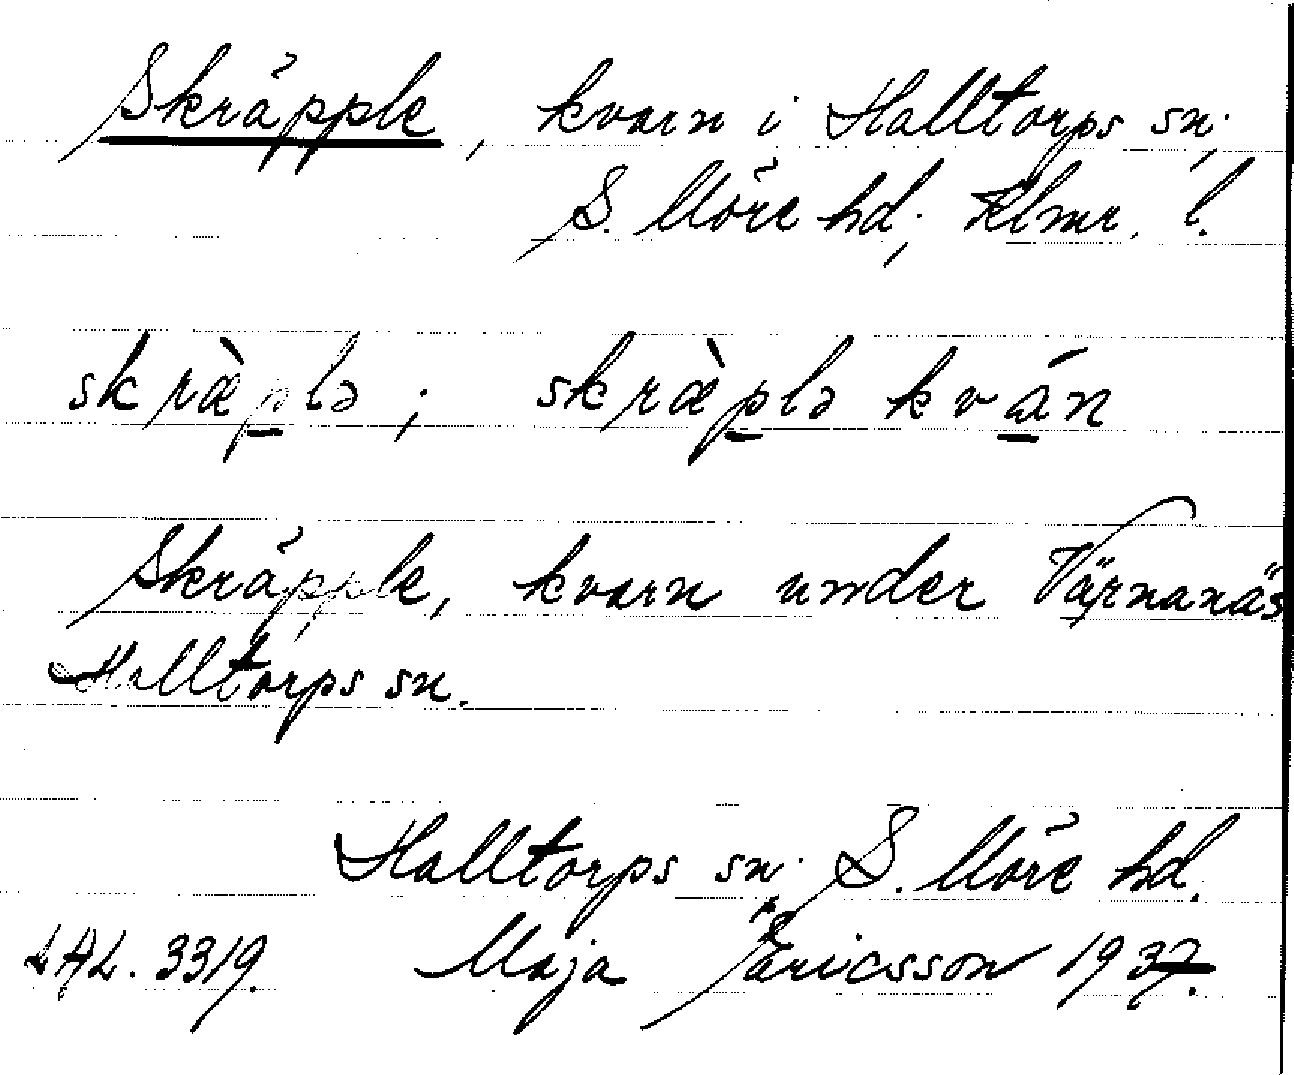 Skräpple, kvarn i Halltorps sn;
S. Möre hd; Klmr. l.
skræ̀p̲lə; skræ̀p̲lə kvá̲n
Skräpple, kvarn under Värnanäs
Halltorps sn.
Halltorps sn; S. Möre hd.
LAL. 3319. Maja Ericsson 1937.